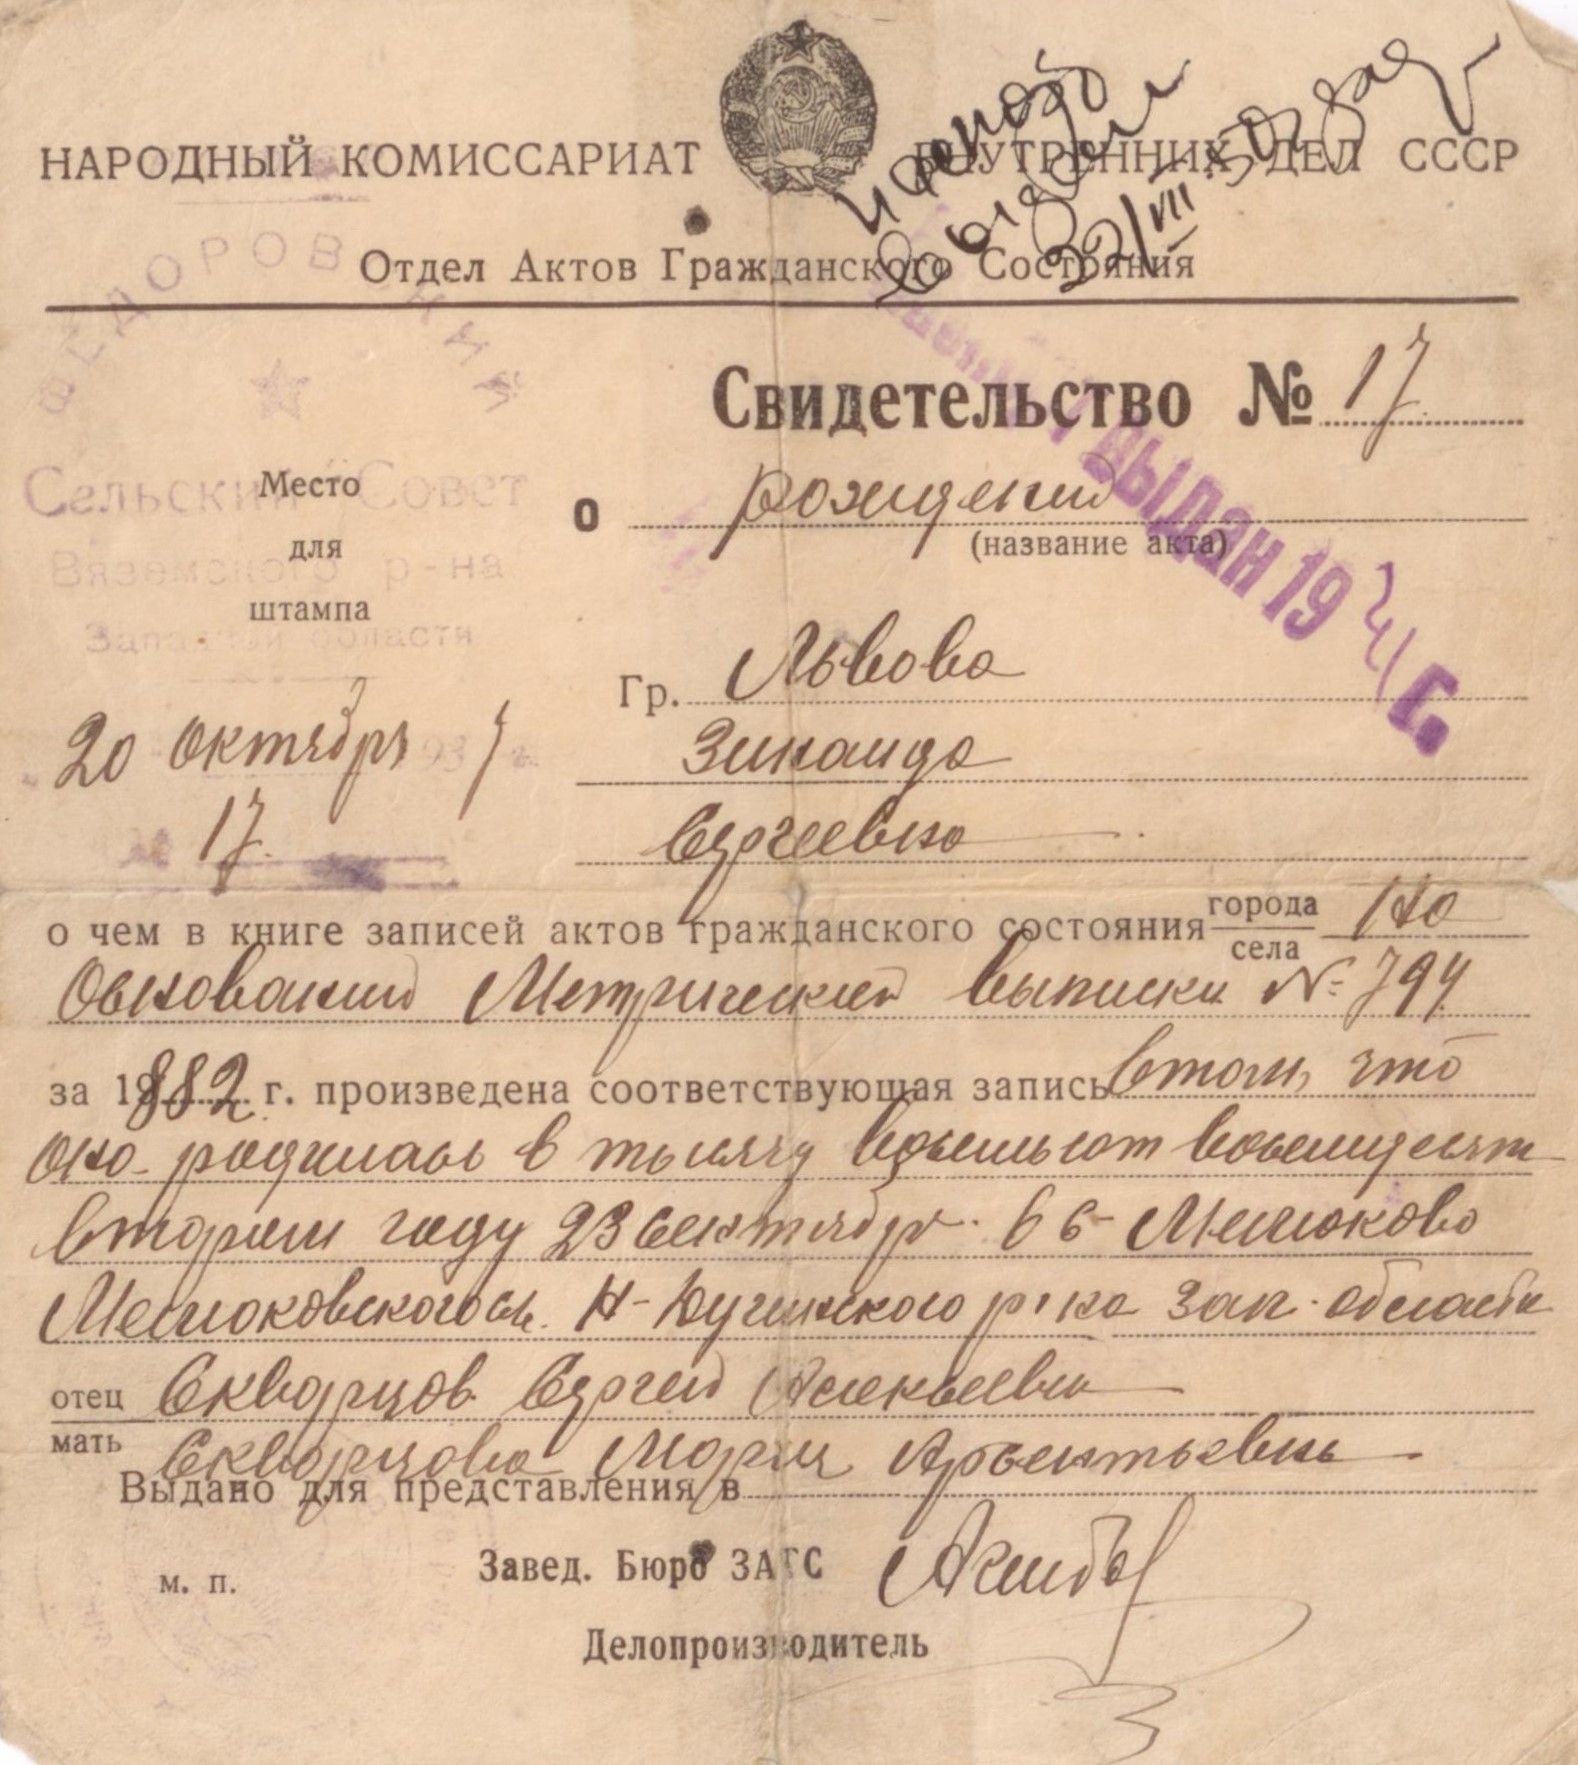 НАРОДНЫЙ КОМИССАРИАТ ВНУТРЕННИХ ДЕЛ СССР
22/VII
Отдел Актов Гражданского Состояния
ФЕДОРОВСКИЙ
Сельский Совет
Вяземского р-на
Западной области
Место
для
штампа
20 октября 1937 г.
№ 17
Свидетельство № 17
о рождении
(название акта)
выдан 1941 г.
Гр. Львова
Зинаида
Сергеевна
о чем в книге записей актов гражданского состояния города
села На
Основании Метрической выписки № 794
за 1882 г. произведена соответствующая запись в том, что
она родилась в тысячу восемьсот восемьдесят
втором году 23 сентября в с-
р-на Зап. области
отец Скварцов Сергей
мать Скварцова Мария
Выдано для представления в
м. п.
Завед. Бюро ЗАГС
Делопроизводитель